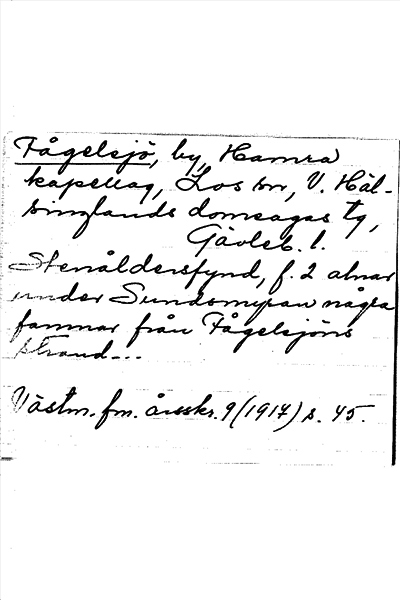 Fågelsjö, by, Hamra
kapellag, Los sn, V. Häl-
singlands domsagas tg,
Gävleb. l.
Stenåldersfynd, f. 2 alnar
under Sundsmyran några
famnar från Fågelsjöns
strand...
Västm. fm. årsskr. 9 (1917) s. 45.